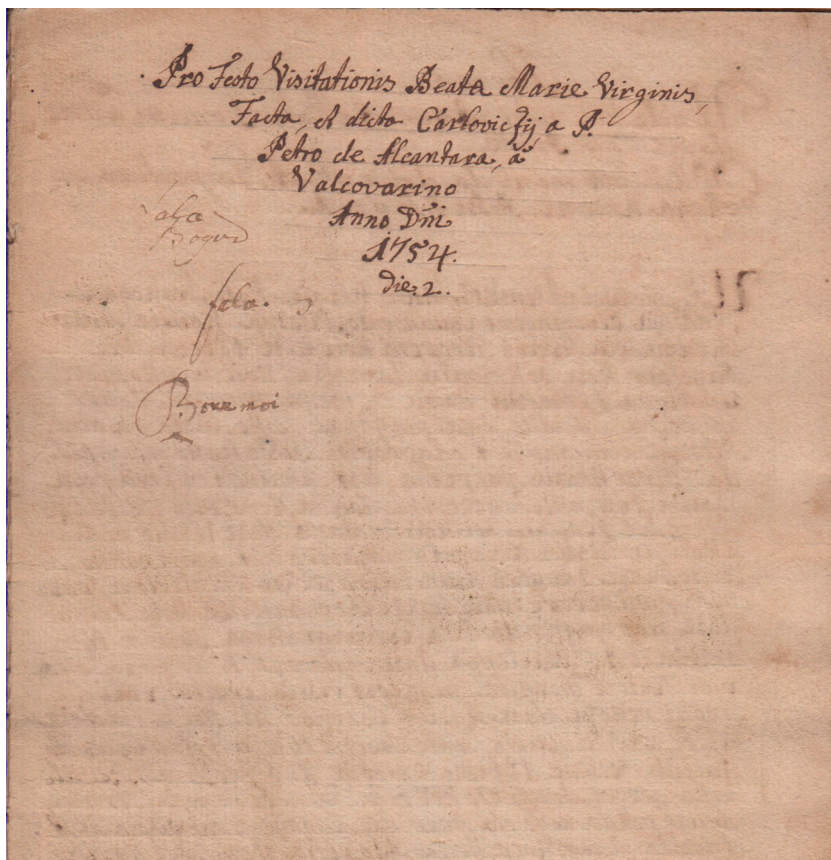 Pro Festo Visitationis Beata Marie Virginis,
Facta, et dicta Carlovicÿ a P.
Petro de Alcantara, a
Valcovarino
Anno Dni
1754.
die 2.
fala.
Boxe moi